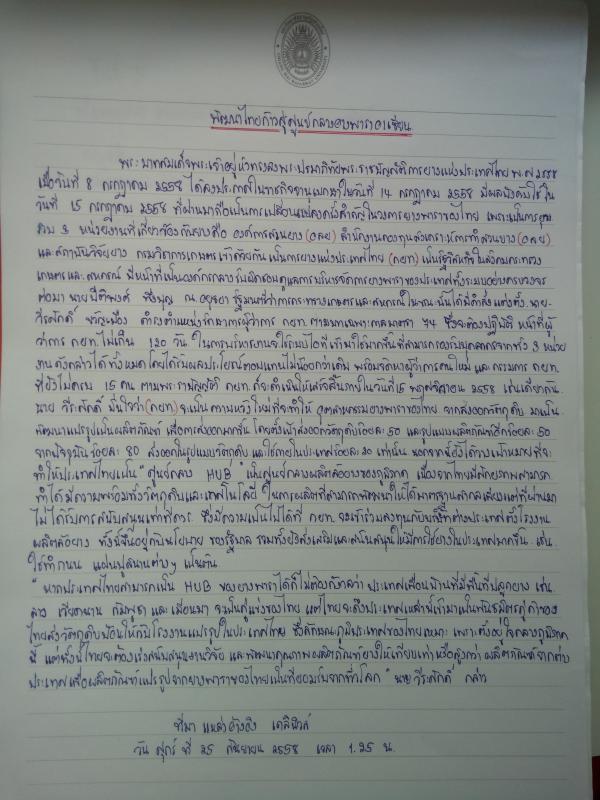 พัฒนาไทยก้าวสู่ศูนย์กลางยางพาราอาเซียน
พระบาทสมเด็จพระเจ้าอยู่หัวทรงลงพระปรมาภิไธยพระราชบัญญัติการยางแห่งประเทศไทย พ.ศ 2558
เมื่อวันที่ 8 กรกฎาคม 2558 ได้ลงประกาศในราชกิจจานุเบกษาในวันที่ 14 กรกฎาคม 2558 มีผลบังคับใช้ใน
วันที่ 15 กรกฎาคม 2558 ที่ผ่านมาถือเป็นการเปลี่ยนแปลงครั้งสำคัญในวงการยางพาราของไทย เพราะเป็นการยุบ
รวม 3 หน่วยงานที่เกี่ยวข้องกับยางคือ องค์การสวนยาง (อสย) สำนักงานกองทุนสงเคราะห์การทำสวนยาง (อสย)
และสถาบันวิจัยยาง กรมวิชาการเกษตร เข้าด้วยกัน เป็นการยางแห่งประเทศไทย (กยท) เป็นรัฐวิสาหกิจในสังกัดกระทรวง
เกษตรและสหกรณ์ มีหน้าที่เป็นองค์กรกลางรับผิดชอบดูแลการบริหารจัดการยางพาราของประเทศทั้งระบบอย่างครบวงจร
ต่อมา นายปีติพงศ์ พึ่งบุญ ณ อยุธยา รัฐมนตรีว่าการกระทรวงเกษตรและสหกรณ์ในขณะนั้นได้มีคำสั่งแต่งตั้ง นาย-
วีรศักดิ์ ขวัญเมือง ดำรงตำแหน่งรักษาการผู้ว่าการ กยท. ตามบทเฉพาะกาลมาตรา 74 ซึ่งจะต้องปฏิบัติ หน้าที่ผู้
ว่าการ กยท. ไม่เกิน 120 วัน
งานดังกล่าวได้ทั้งหมดโดยได้รับผลประโยชน์ตอบแทนไม่น้อยกว่าเดิม พร้อมจัดหาผู้ว่าการคนใหม่ และ กรรมการ กยท.
ที่ยังไม่ครบ 15 คน ตามพระราชบัญญัติ กยท. ก็จะดำเนินให้เสร็จสิ้นภายในวันที่ 15 พฤศจิกายน 2558 เช่นเดียวกัน
นาย วีระศักดิ์ มั่นใจว่า (กยท) จะเป็นความหวังใหม่ที่จะทำให้ อุตสาหกรรมยางพาราของไทย จากส่งออกวัตถุดิบ มาเป็น
พัฒนาแปรรูปเป็นผลิตภัณฑ์ เพื่อการส่งออกมากขึ้น โดยตั้งเป้าส่งออกวัตถุดิบร้อยละ 50 และรูปแบบผลิตภัณฑ์อีกร้อยละ 50
จากปัจจุบันร้อยละ 80 ส่งออกในรูปแบบวัตถุดิบ และใช้ภายในประเทศร้อยละ 20 เท่านั้น นอกจากนี้ยังได้วางเป้าหมายที่จะ
ทำให้ประเทศไทยเป็น "ศูนย์กลาง HUB" เป็นศูนย์กลางผลิตล้อยางของภูมิภาค เนื่องจากไทยมีศักยภาพสามารถ
ทำได้ มีความพร้อมทั้งวัตถุดิบและเทคโนโลยี ในการผลิตที่สามารถพัฒนาให้ได้มาตรฐานสากลเพียงแต่ที่ผ่านมา
ไม่ได้รับการสนับสนุนเท่าที่ควร ซึ่งมีความเป็นไปได้ที่ กยท. จะเข้าร่วมลงทุนกับบริษัทต่างประเทศตั้งโรงงาน
ผลิตล้อยาง ทั้งนี้ขึ้นอยู่กับนโยบาย ของรัฐบาล รวมทั้งยังส่งเสริมและสนับสนุนให้มีการใช้ยางในประเทศมากขึ้น เช่น
ใช้ทำถนน แผ่นปูสนามต่างๆ เป็นต้น
"หากประเทศไทยสามารถเป็น HUB ของยางพาราได้ก็ไม่ต้องกังวลว่า ประเทศเพื่อนบ้านที่มีพื้นที่ปลูกยาง เช่น
ลาว เวียดนาม กัมพูชา และเมียนมา จะเป็นคู่แข่งของไทย แต่ไทยจะดึงประเทศเหล่านี้เข้ามาเป็นพันธมิตรคู่ค้าของ
ไทยส่งวัตถุดิบป้อนให้กับโรงงานแปรรูปในประเทศไทย ซึ่งลักษณะภูมิประเทศของไทยเหมาะ เพราะตั้งอยู่ใจกลางภูมิภาค
นี้ แต่ทั้งนี้ไทยจะต้องเร่งสนับสนุนงานวิจัย และพัฒนาคุณภาพผลิตภัณฑ์ยางให้เทียบเท่า หรือสูงกว่า ผลิตภัณฑ์จากต่าง
ประเทศเพื่อผลิตภัณฑ์แปรรูปจากยางพาราของไทยเป็นที่ยอมรับจากทั่วโลก" นาย วีระศักดิ์ กล่าว
ที่มา แหล่งอ้างอิง เดลินิวส์
วัน ศุกร์ ที่ 25 กันยายน 2558 เวลา 1.25 น.